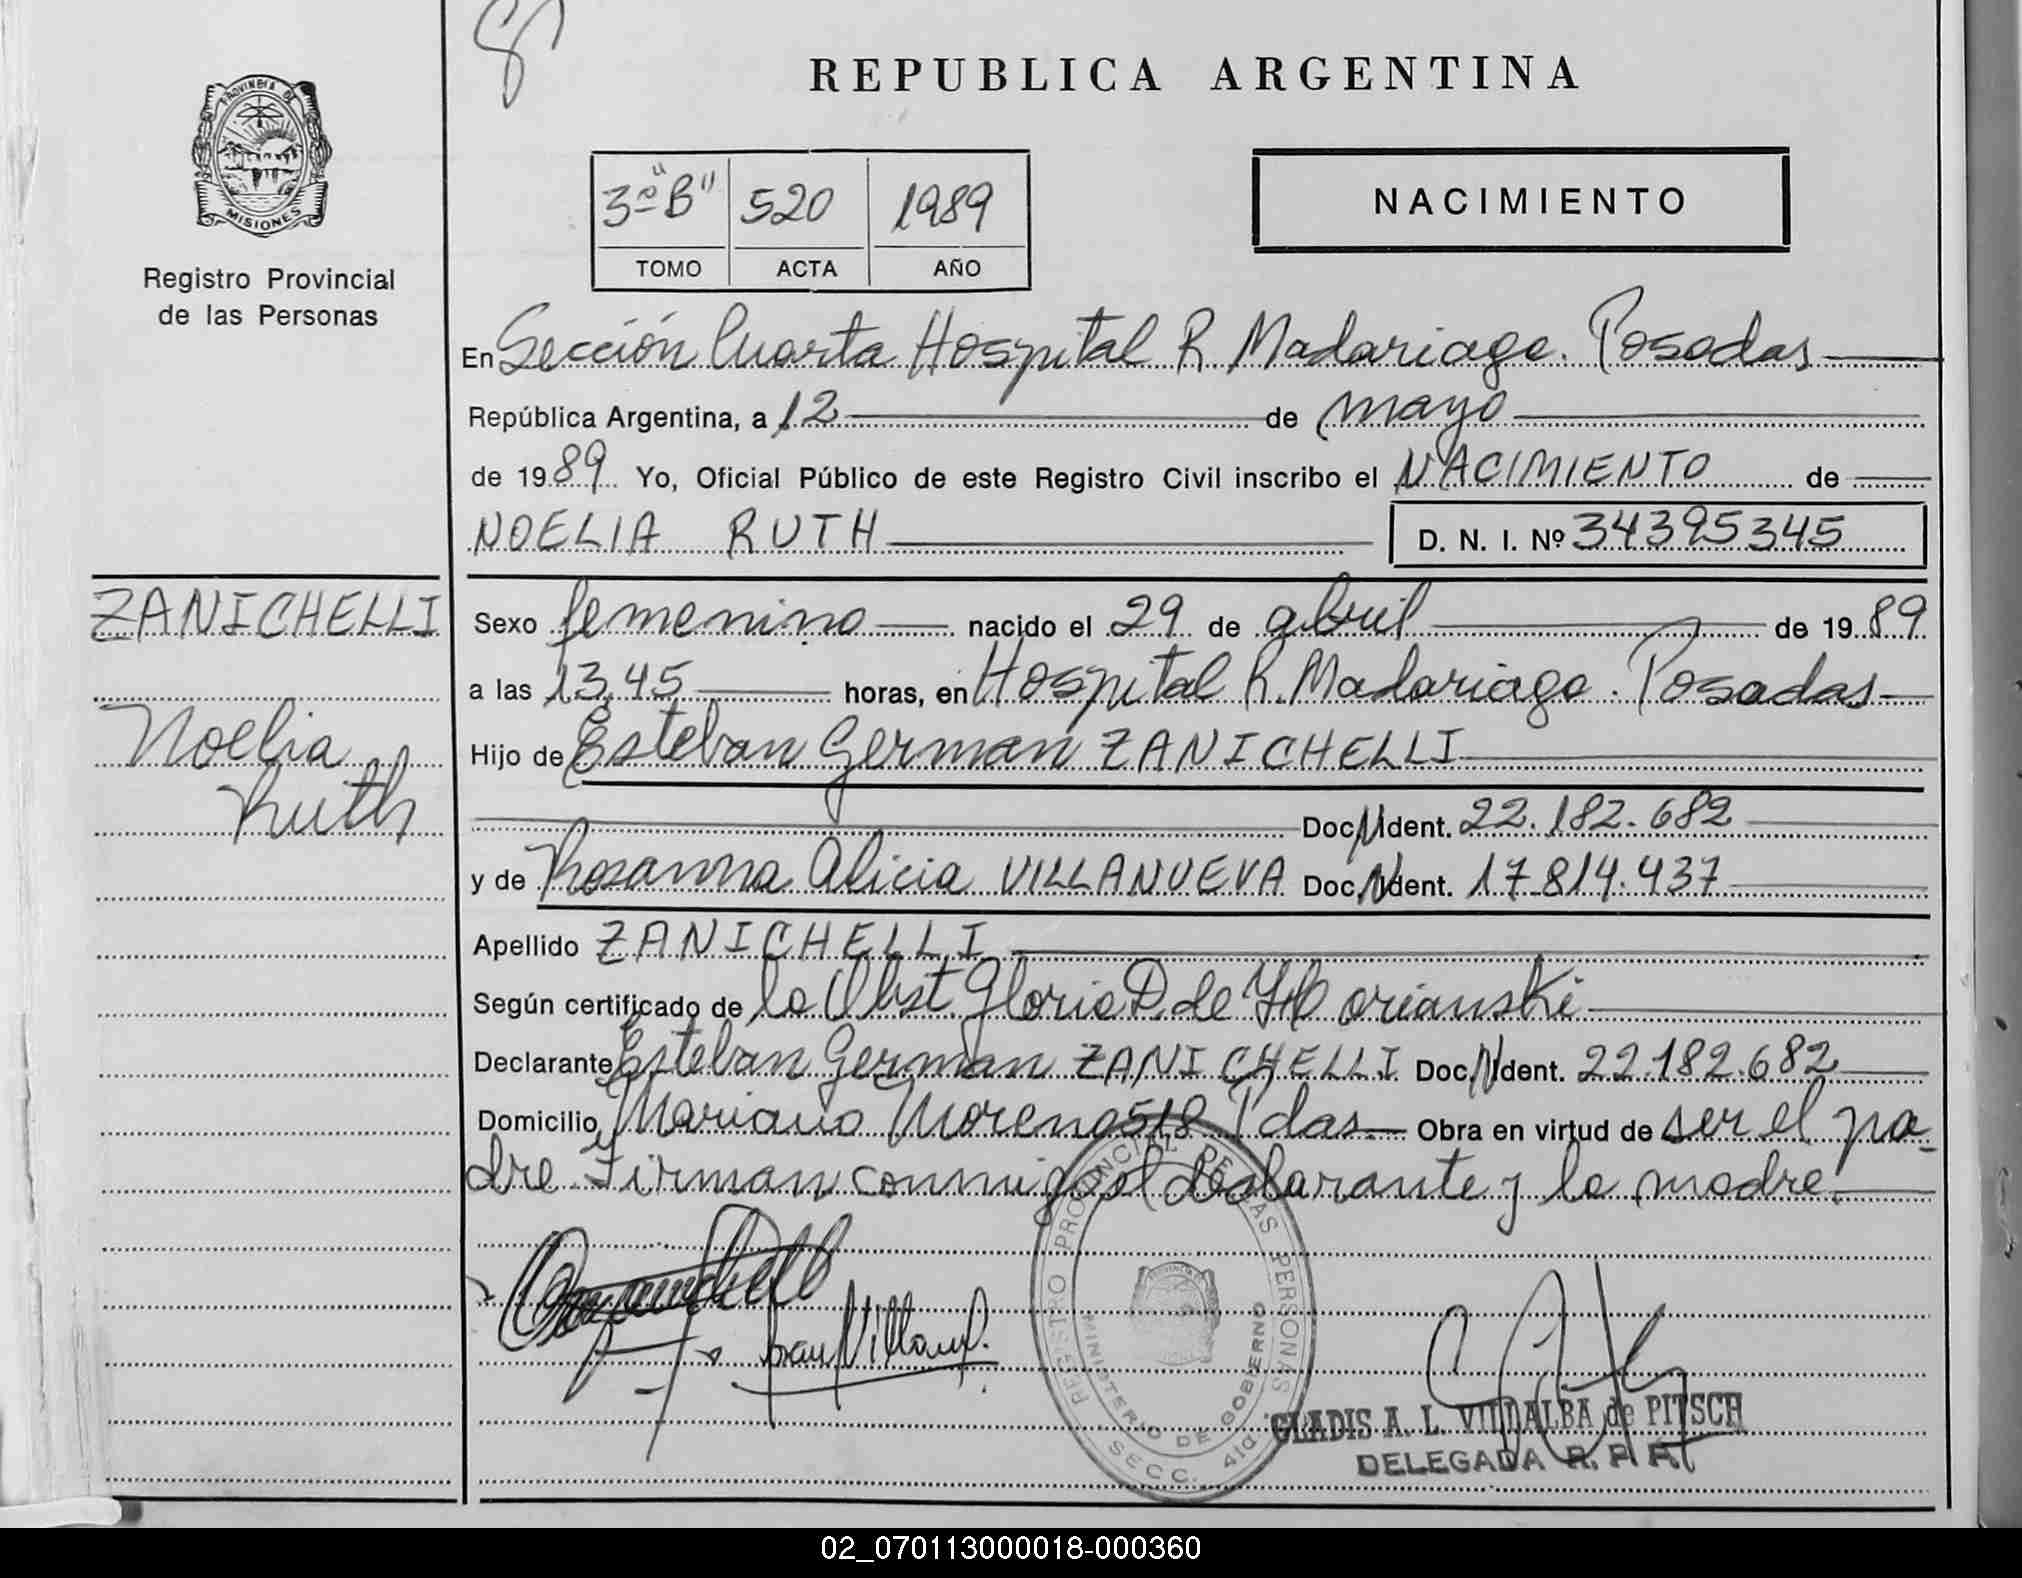 REPUBLICA ARGENTINA
PROVINCIA DE
MISIONES
Registro Provincial
de las Personas
3º "B" 520 1989
TOMO ACTA AÑO
NACIMIENTO
En Sección Cuarta Hospital R. Madariaga. Posadas
República Argentina, a 12 de mayo
de 1989 Yo, Oficial Público de este Registro Civil inscribo el NACIMIENTO de
NOELIA RUTH D. N. I. Nº 34395345
ZANICHELLI
Noelia
Ruth
Sexo femenino nacido el 29 de abril de 1989
a las 13,45 horas, en Hospital R. Madariaga. Posadas
Hijo de Esteban German ZANICHELLI
Doc. Ident. 22.182.682
y de Rosanna Alicia VILLANUEVA Doc. Ident. 17.814.437
Apellido ZANICHELLI
Según certificado de la Obst Gloria D. de
Declarante Esteban German ZANICHELLI Doc. Ident. 22.182.682
Domicilio Mariano Moreno 518 Pdas. Obra en virtud de ser el pa-
dre y Firman conmigo el declarante y la madre.
REGISTRO PROVINCIAL DE LAS PERSONAS
MINISTERIO DE GOBIERNO
SECC. 4ta.
GLADIS A. L. VILLALBA de PITSCH
DELEGADA R. P. P.
02_070113000018-000360